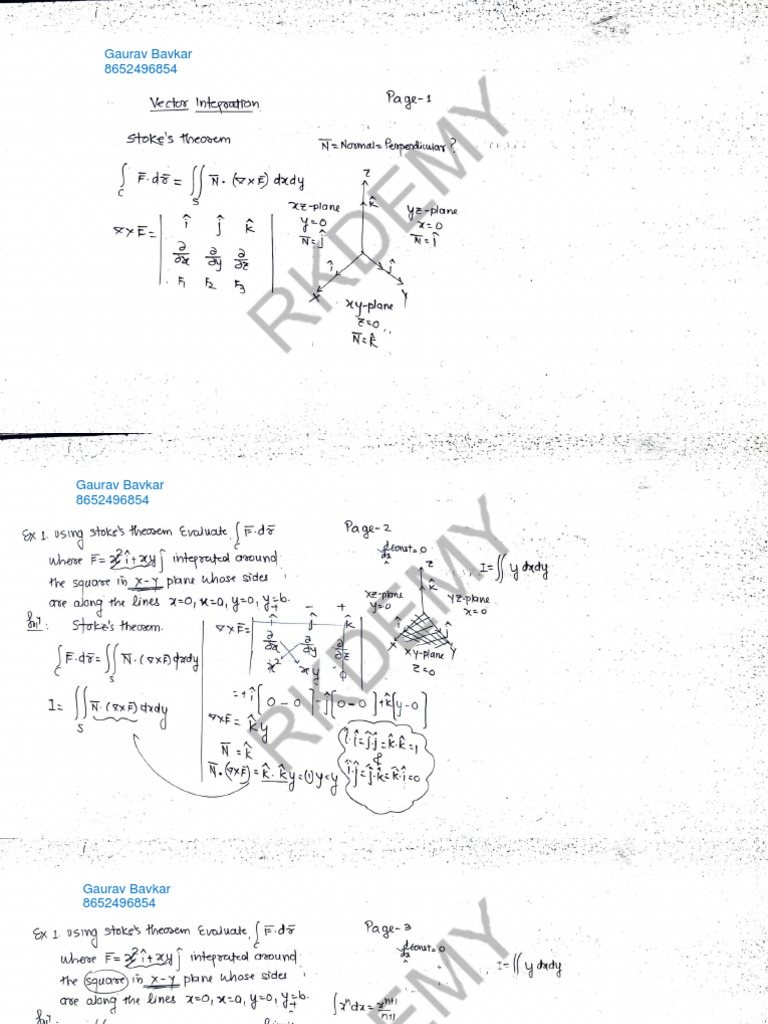 Gaurav Bavkar
8652496854
Vector Integration
Page-1
Stoke's theorem
N̄ = Normal = Perpendicular?
∫_C F̄·dr̄ = ∬_S N̄·(∇×F̄) dxdy
∇×F̄ = | î ĵ k̂ |
∂/∂x ∂/∂y ∂/∂z
F₁ F₂ F₃
xz-plane
y=0
N̄=ĵ
Z
k̂
î
ĵ
X
Y
yz-plane
x=0
N̄=î
xy-plane
z=0
N̄=k̂
RKDEMY
Gaurav Bavkar
8652496854
Ex 1. Using Stoke's theorem Evaluate ∫_C F̄·dr̄
Page-2
where F̄ = x²î+xyĵ integrated around
the square in x-y plane whose sides
are along the lines x=0, x=a, y=0, y=b.
d/dx const=0
I=∬ y dxdy
Solⁿ: Stoke's theorem
∫_C F̄·dr̄ = ∬_S N̄·(∇×F̄) dxdy
I = ∬_S N̄·(∇×F̄) dxdy
+ - +
∇×F̄ = | î ĵ k̂ |
∂/∂x ∂/∂y ∂/∂z
x² xy 0
= +î[0-0] -ĵ[0-0] +k̂[y-0]
∇×F̄ = k̂y
N̄ = k̂
N̄·(∇×F̄) = k̂·k̂y = (1)y = y
î·î=ĵ·ĵ=k̂·k̂=1
&
î·ĵ=ĵ·k̂=k̂·î=0
xz-plane
y=0
Z
k̂
yz-plane
x=0
X
Y
xy-plane
z=0
RKDEMY
Gaurav Bavkar
8652496854
Ex 1. Using Stoke's theorem Evaluate ∫_C F̄·dr̄
Page-3
where F̄ = x²î+xyĵ integrated around
the square in x-y plane whose sides
are along the lines x=0, x=a, y=0, y=b.
d/dx const=0
I=∬ y dxdy
∫xⁿdx = xⁿ⁺¹/n+1
RKDEMY